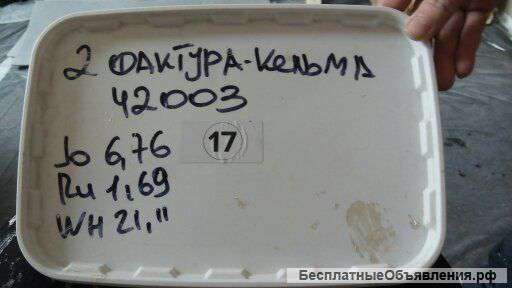 2 ФАКТУРА-КЕЛЬМА
42003
17
Jo 6,76
Ru 1,69
WH 21,11
БесплатныеОбъявления.рф